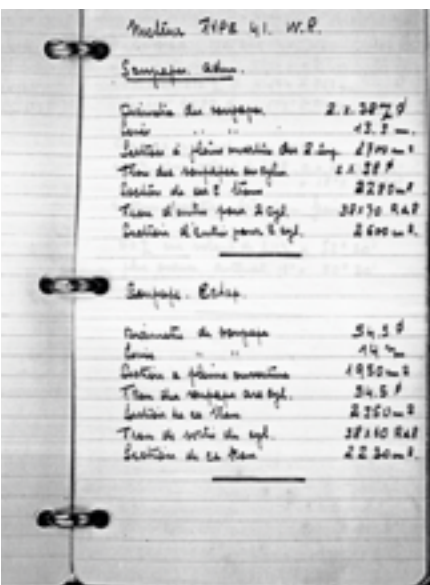 Moteur TYPE 41. W.P.
Soupapes. Adm.
Diamètre des soupapes 2 x 38
Levée " " 13.5 m.
Section à pleine ouverture des 2 soup. 2700 m²
Trou des soupapes au cylin. 2 x 38 Ø
Section de ces 2 trous 2280 m²
Trou d'entrée pour 2 cyl. 38x70 R28
Section d'entrée pour 2 cyl. 2600 m².
Soupape. Echap.
Diamètre de soupape 54.5 Ø
Levée " " 14 m
Section à pleine ouverture 1950 m²
Trou des soupapes aux cyl. 54.5 Ø
Section de ce trou 2350 m²
Trou de sortie du cyl. 38x60 R28
Section de ce trou 2230 m².